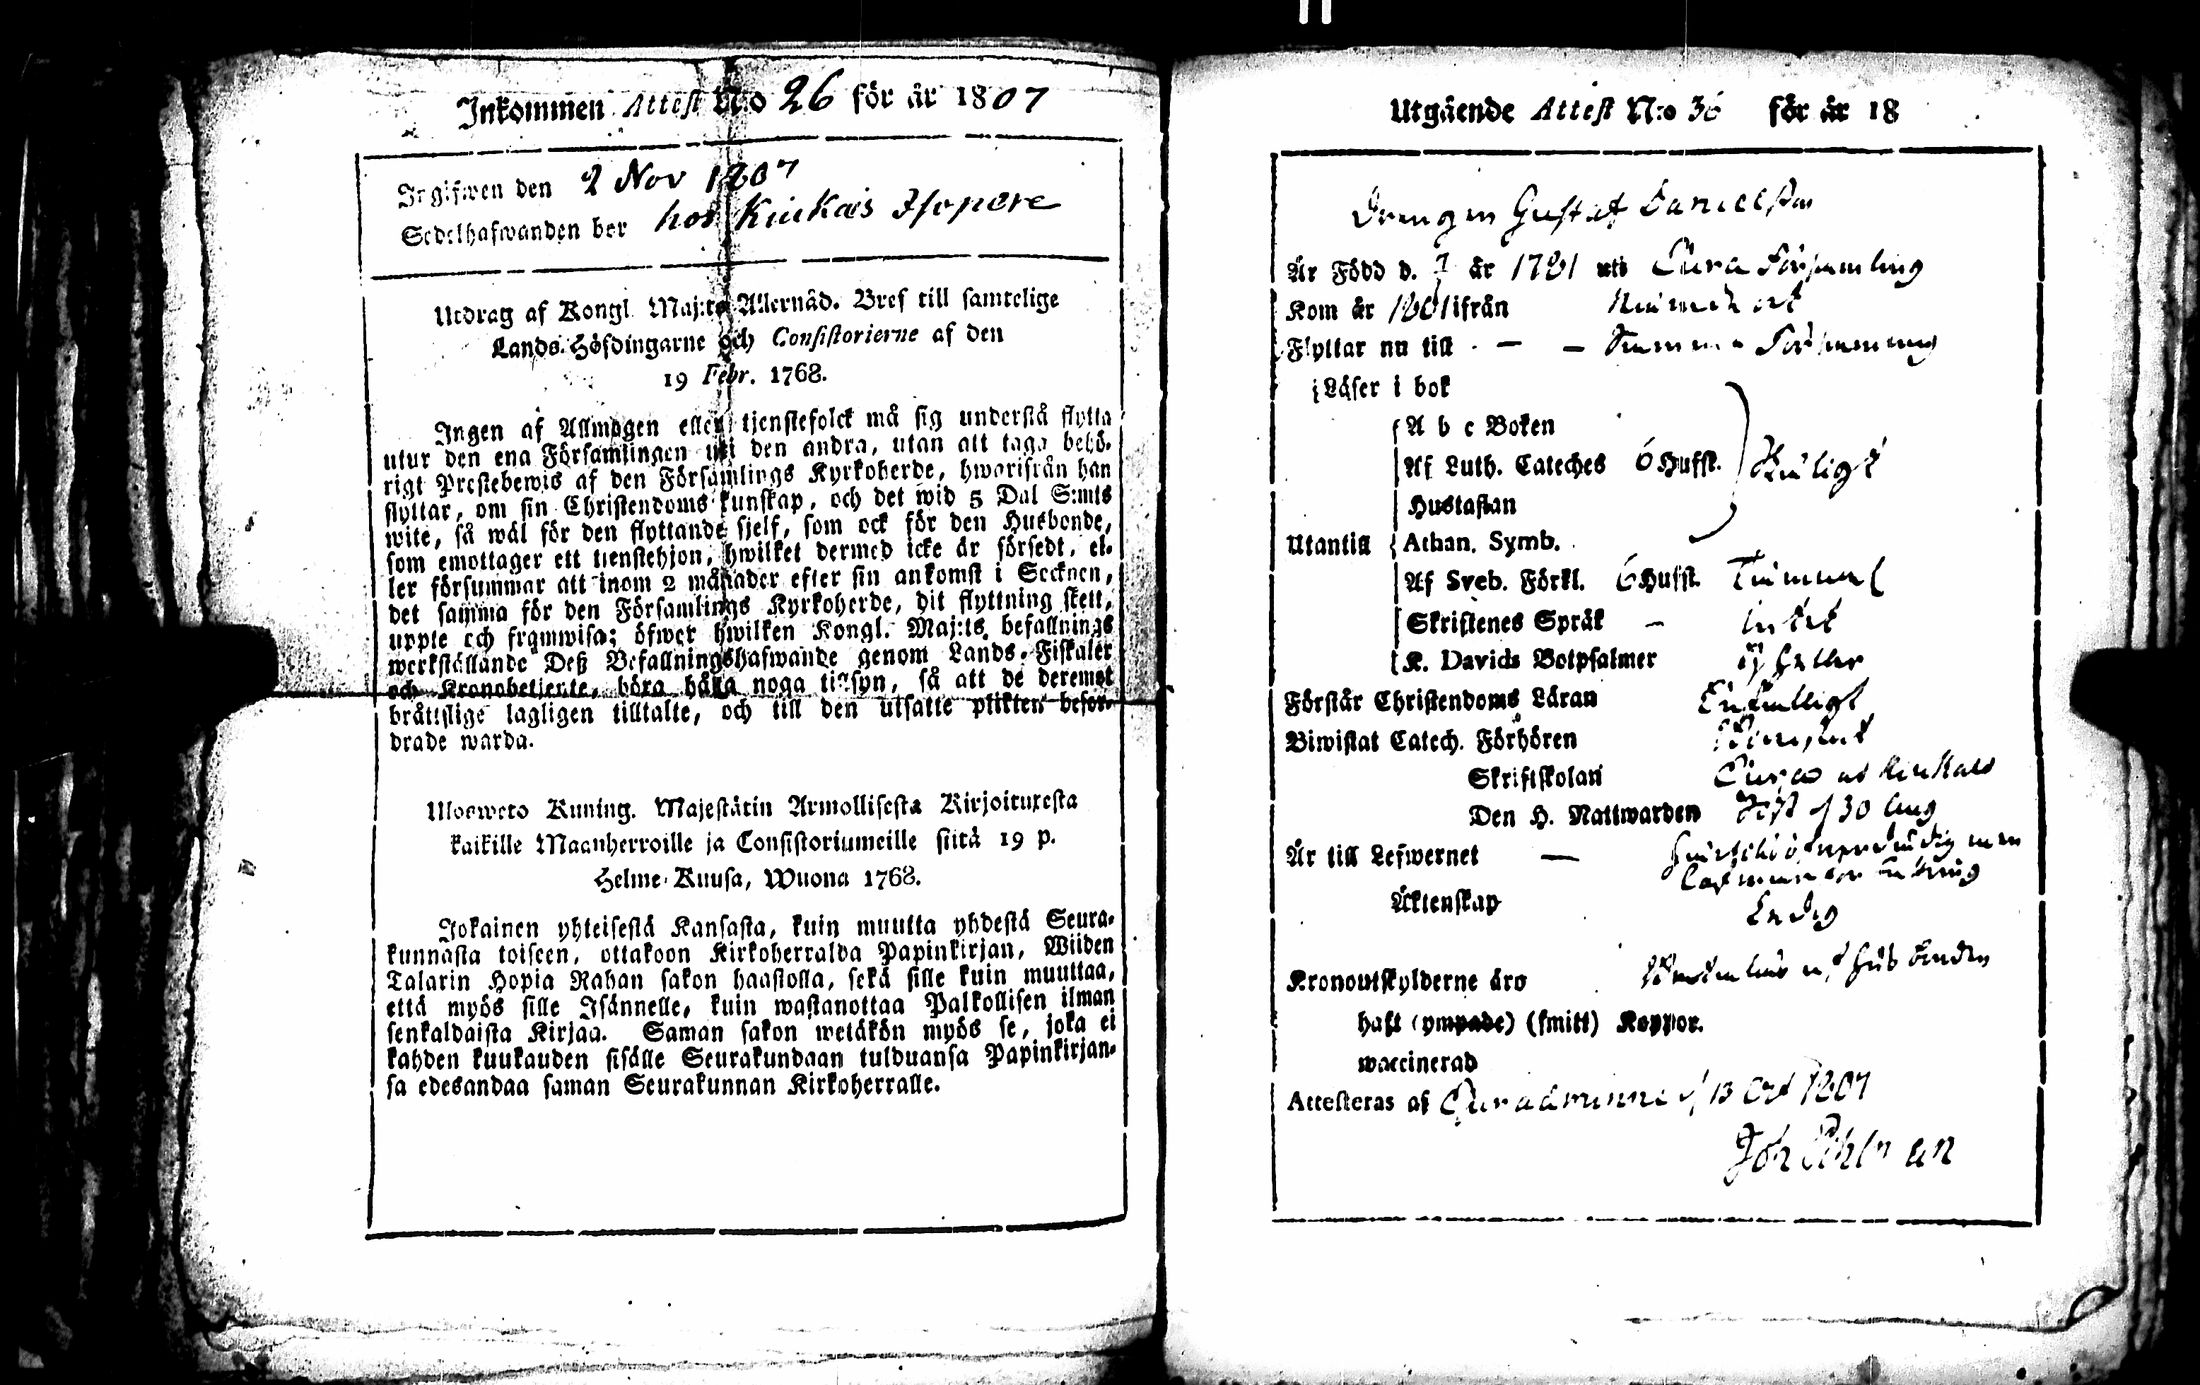 Inkommen Attest N:o 26 för år 1807
Ingifwen den 2 Nov 1807
Sedelhafwanden bor hos Kiukais Isopere
Utdrag af Kongl. Maj:ts Allernåd. Bref till samtelige
Lands-Höfdingarne och Consistorierne af den
19 Febr. 1768.
Ingen af Allmogen eller tjenstefolck må sig understå flytta
utur den ena Församlingen uti den andra, utan att taga behö-
rigt Prestebewis af den Församlings Kyrkoherde, hwarifrån han
flyttar, om sin Christendoms kunskap, och det wid 5 Dal S:mts
wite, så wäl för den flyttande sjelf, som ock för den Husbonde,
som emottager ett tienstehjon, hwilket dermed icke är försedt, el-
ler försummar att inom 2 månader efter sin ankomst i Socknen,
det samma för den Församlings Kyrkoherde, dit flyttning skett,
uppte och framwisa; öfwer hwilken Kongl. Maj:ts befallnings
werkställande Deß Befallningshafwande genom Lands-Fiskaler
och Kronobetjente, böra hålla noga tillsyn, så att de deremot
bråttslige lagligen tilltalte, och till den utsatte plikten befor-
drade warda.
Ulosweto Kuning. Majestätin Armollisesta Kirjoituxesta
kaikille Maanherroille ja Consistoriumeille siitä 19 p.
Helme-Kuusa, Wuona 1768.
Jokainen yhteisestä Kansasta, kuin muutta yhdestä Seura-
kunnasta toiseen, ottakoon Kirkoherralda Papinkirjan, Wiiden
Talarin Hopia Rahan sakon haastolla, sekä sille kuin muuttaa,
että myös sille Isännelle, kuin wastanottaa Palkollisen ilman
senkaldaista Kirjaa. Saman sakon wetäkön myös se, joka ei
kahden kuukauden sisälle Seurakundaan tulduansa Papinkirjan-
sa edesandaa saman Seurakunnan Kirkoherralle.
Utgående Attest N:o 36 för år 18
Drengen Gustaf Danielsson
Är Född d. 7 år 1781 uti Eura Församling
Kom år 1801 ifrån
Flyttar nu till - - - Församling
Läser i bok
A b c Boken
Af Luth. Cateches 6 Hufst.
Hustaflan
Utantill Athan. Symb.
Af Sveb. Förkl. 6 Hufst.
Skriftenes Språk - intet
K. Davids Botpsalmer ej heller
Förstår Christendoms Läran Enfaldigt
Biwistat Catech. Förhören
Skriftskolan
Den H. Nattwarden sist d 30 Aug
Är till Lefwernet —
Äktenskap Ledig
Kronoutskylderne äro
haft (ympade) (smitt) Koppor.
waccinerad
Attesteras af Euraåminne d 13 Oct 1807